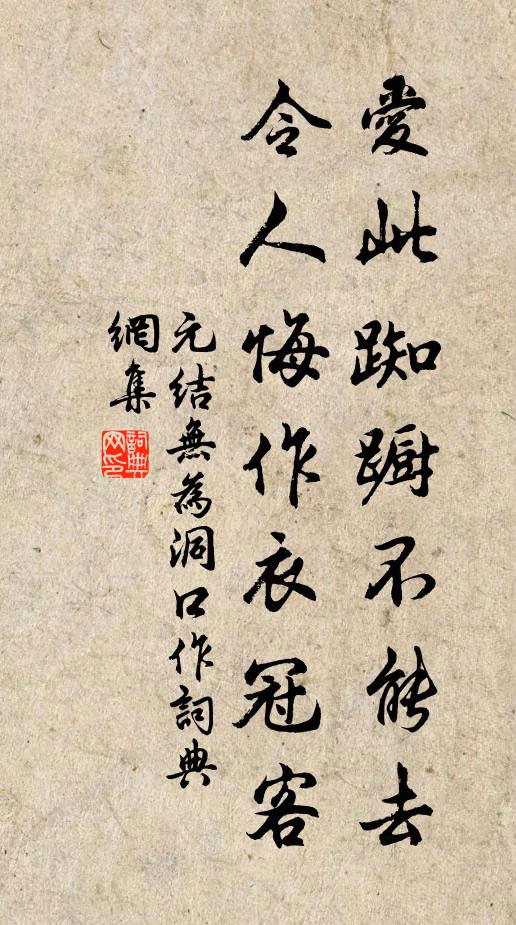 愛此踟躕不能去
令人悔作衣冠客
元結無為洞口作詞典
網集
詞典網印